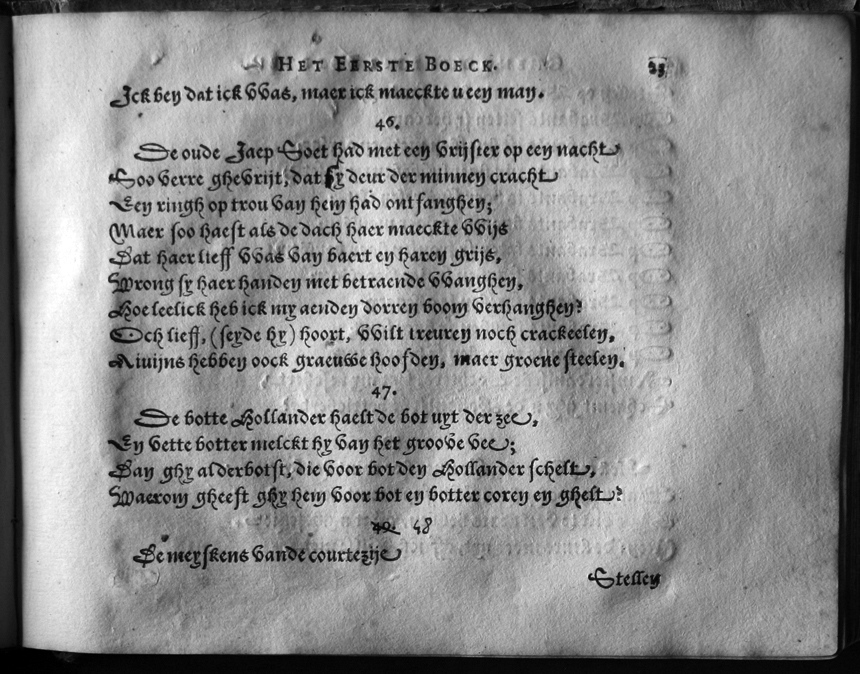 HET EERSTE BOECK. 25
Ick ben dat ick vvas, maer ick maeckte u een man.
46.
De oude Jaep Soet had met een vrijster op een nacht
Soo verre ghevrijt, dat sy deur der minnen cracht
Een ringh op trou van hem had ontfanghen;
Maer soo haest als de dach haer maeckte vvijs
Dat haer lieff vvas van baert en haren grijs,
Wrong sy haer handen met betraende vvanghen,
Hoe leelick heb ick my aenden dorren boom verhanghen?
Och lieff, (seyde hy) hoort, vvilt treuren noch crackeelen,
Aiuijns hebben oock graeuwe hoofden, maer groene steelen.
47.
De botte Hollander haelt de bot uyt der zee,
En vette botter melckt hy van het groove vee;
Dan ghy alderbotst, die voor bot den Hollander schelt,
Waerom gheeft ghy hem voor bot en botter coren en ghelt?
49. 48
De meyskens vande courtezije
Stellen